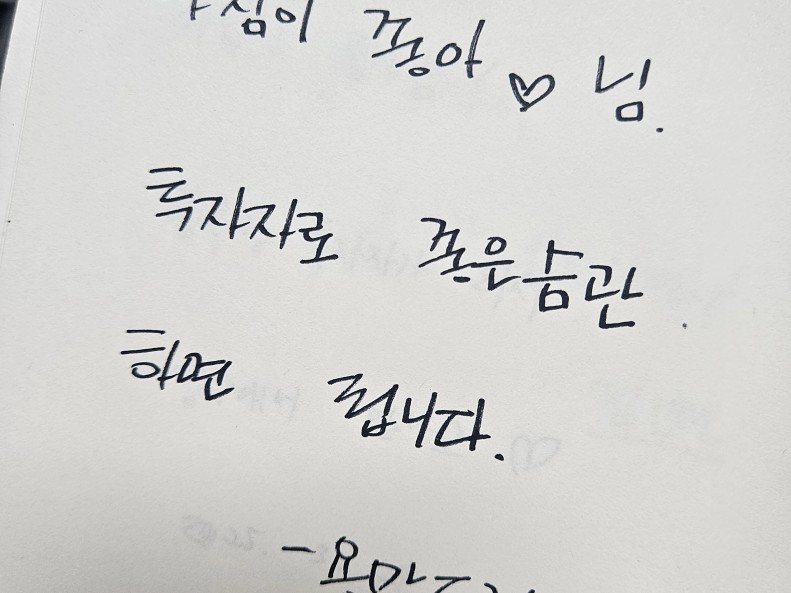 좋아 ♡ 님.
투자자로 좋은습관
하면 됩니다.